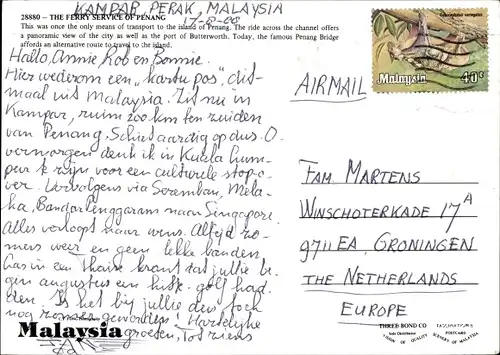 KAMPAR, PERAK, MALAYSIA
17-8-88
28880 – THE FERRY SERVICE OF PENANG
This was once the only means of transport to the island of Penang. The ride across the channel offers
a panoramic view of the city as well as the port of Butterworth. Today, the famous Penang Bridge
affords an alternative route to travel to the island.
Hallo Annie, Rob en Bonnie.
Hier wederom een "kartu pos", dit-
maal uit Malaysia. Zit nu in
Kampar, ruim 200 km ten zuiden
van Penang. Schiet aardig op dus. O-
vermorgen denk ik in Kuala Lum-
pur te zijn voor een culturele stop-o-
ver. Vervolgens via Seremban, Mela-
ka, Bandar Penggaram naar Singapore.
Alles verloopt naar wens. Altijd zo-
mers weer en geen lekke banden.
Las in een Thaise krant dat jullie be-
gin augustus een hitte golf had-
den. Is het bij jullie dus toch
nog zomer geworden! Hartelijke
groeten, tot ziens
Malaysia
AIRMAIL
Malaysia 40c
FAM. MARTENS
WINSCHOTERKADE 17A
9711 EA GRONINGEN
THE NETHERLANDS
EUROPE
THREE BOND CO
POSTCARD
VISION OF QUALITY
SCENERY OF MALAYSIA